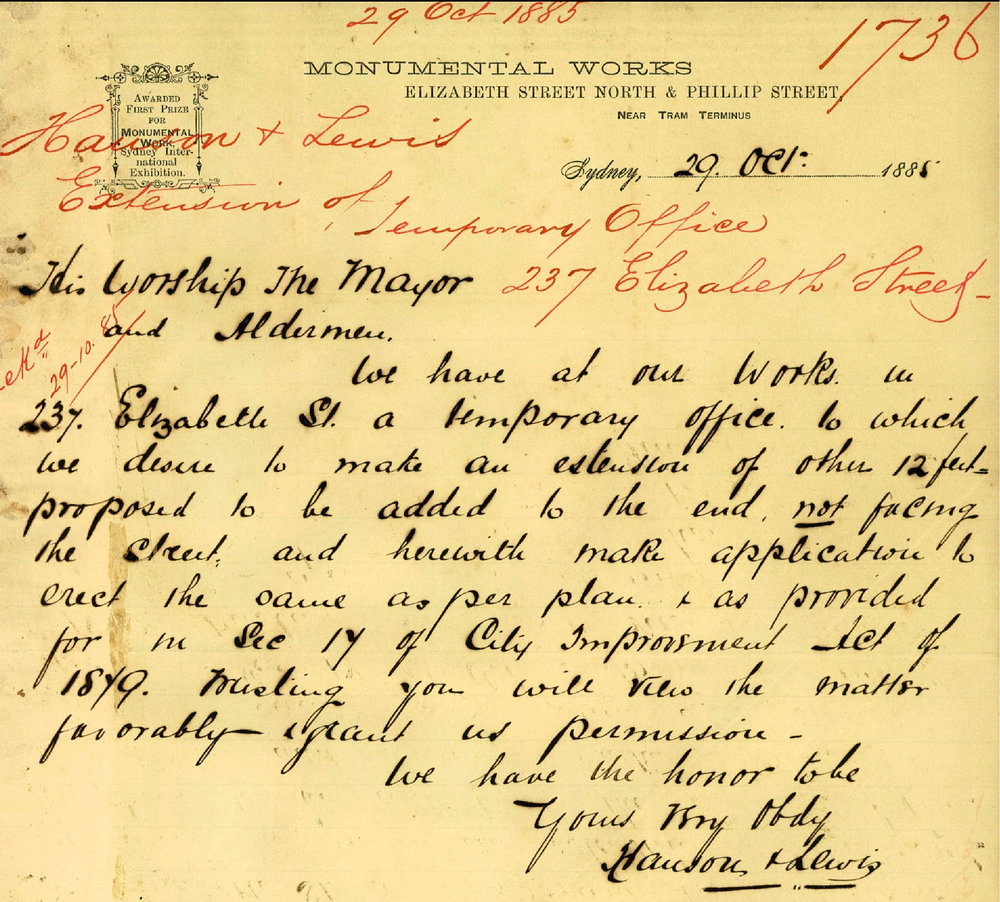 29 Oct 1885
1736
MONUMENTAL WORKS
ELIZABETH STREET NORTH & PHILLIP STREET,
NEAR TRAM TERMINUS
AWARDED
FIRST PRIZE
FOR
MONUMENTAL
WORK,
Sydney Inter-
national
Exhibition.
Hanson & Lewis
Sydney, 29. Oct. 1885
Extension of
Temporary Office
237 Elizabeth Street
His Worship The Mayor
and Aldermen.
29-10.85
We have at our Works. in
237. Elizabeth St. a temporary office. to which
we desire to make an extension of other 12 feet=
proposed to be added to the end, not facing
the street, and herewith make application to
erect the same as per plan. & as provided
for in Sec 17 of City Improvment Act of
1879. Trusting you will view the matter
favorably & grant us permission -
We have the honor to be
Yours Very Obdy
Hanson & Lewis